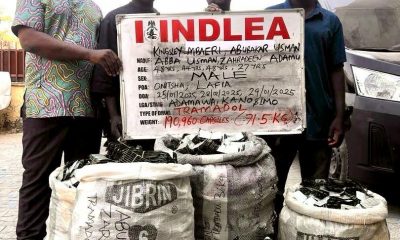 NDLEA
KINGSLEY MBAERI, ABUBAKAR USMAN
NAME: ABBA USMAN, ZAHRADEEN ADAMU
AGE: 48YRS, 44YRS, 48YRS, 37YRS
SEX: MALE
POA: ONITSHA, LAFIA
DOA: 25/01/2025, 28/01/2025, 29/01/2025
LGA/STATE: ADAMAWA, KANO, IMO
TYPE OF DRUG: TRAMADOL
WEIGHT: 190,960 CAPSULES (91.5KG)
JIBRIN
ABU
ZAHRA
TRAMA